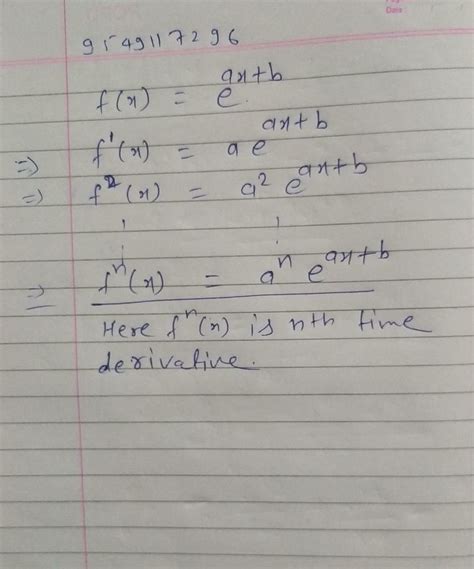 9549117296
f(x) = e^{ax+b}
=> f'(x) = a e^{ax+b}
=> f²(x) = a² e^{ax+b}
=> fⁿ(x) = aⁿ e^{ax+b}
Here fⁿ(x) is nth time
derivative.